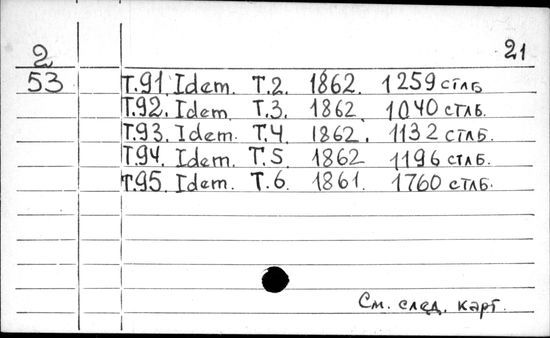 2 21
53 Т.91. Idem. Т.2. 1862. 1259 стлб
Т.92. Idem. Т.3. 1862. 1040 стлб.
Т.93. Idem. Т.4. 1862. 1132 стлб.
Т.94. Idem. Т.5. 1862 1196 стлб.
Т.95. Idem. Т.6. 1861. 1760 стлб.
См. след. карт.